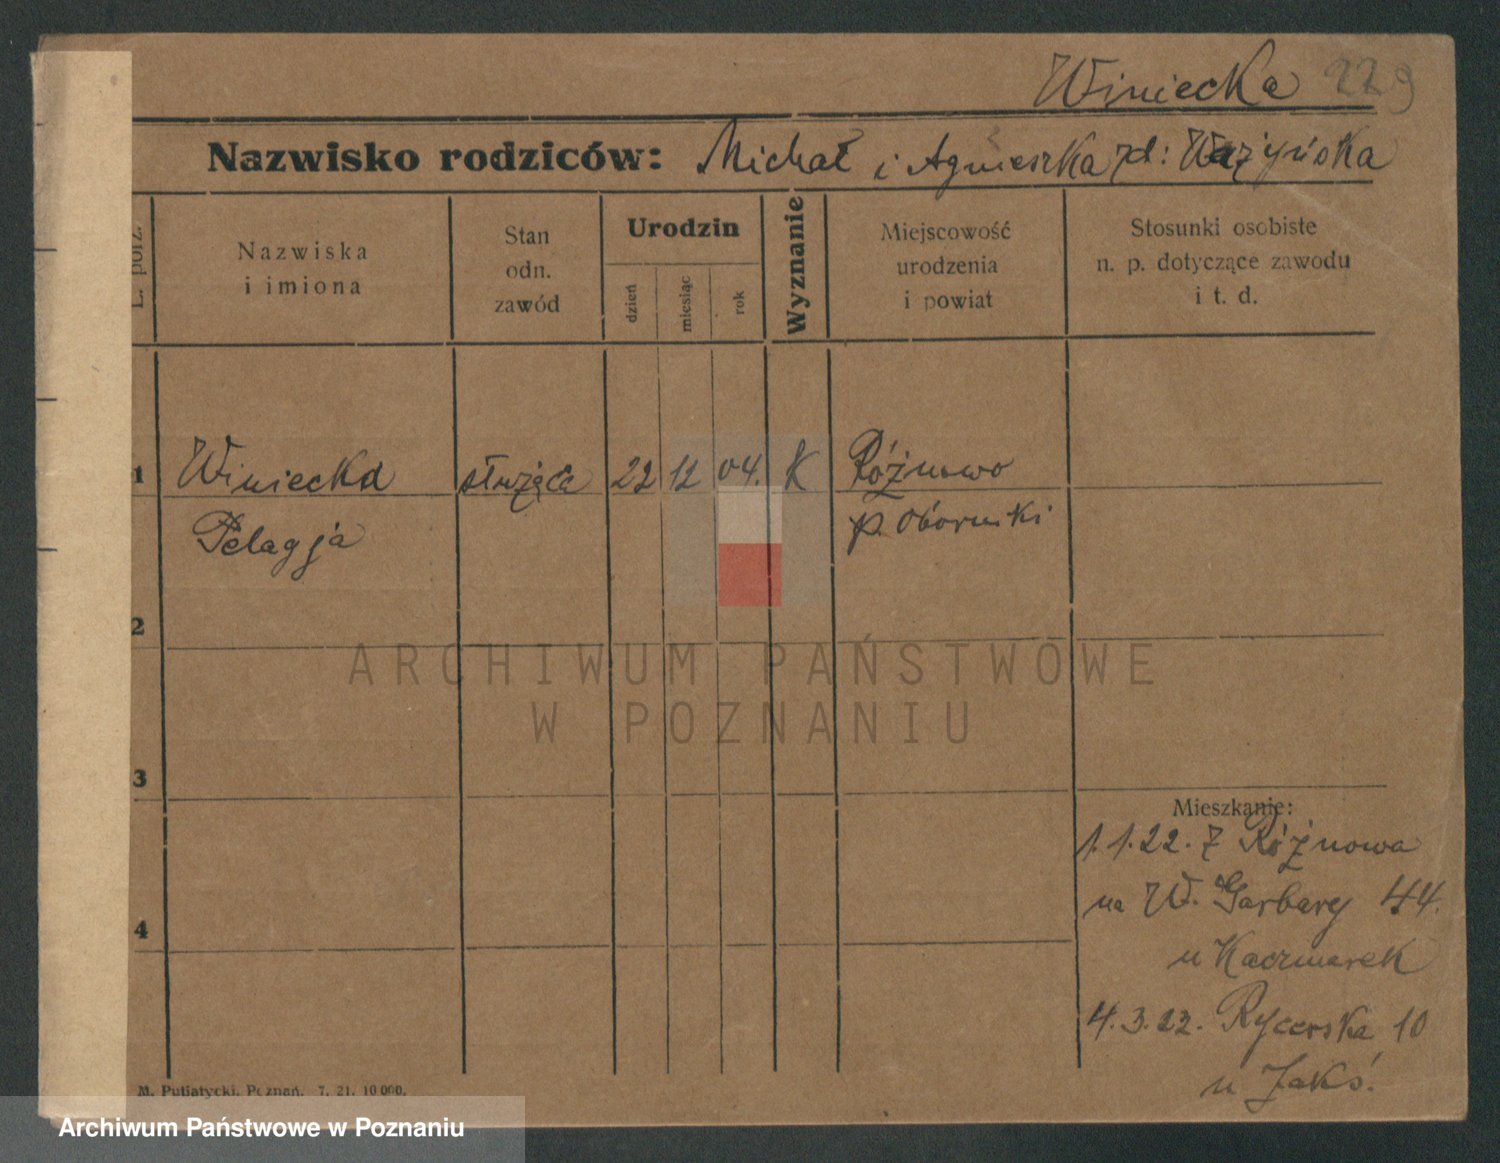 Winiecka 229
Nazwisko rodziców: Michał i Agnieszka zd:
L. porz.
Nazwiska
i imiona
Stan
odn.
zawód
Urodzin
dzień
miesiąc
rok
Wyznanie
Miejscowość
urodzenia
i powiat
Stosunki osobiste
n. p. dotyczące zawodu
i t. d.
1 Winiecka służąca 22 12 04. K Różnowo
Pelagja p. Obornski
2
ARCHIWUM PAŃSTWOWE
W POZNANIU
3
Mieszkanie:
1.1.22. z Różnowa
na W. Garbary 44.
4
u Kaczmarek
4.3.22. Rycerska 10
u
M. Putiatycki, Poznań. 7. 21. 10 000.
Archiwum Państwowe w Poznaniu